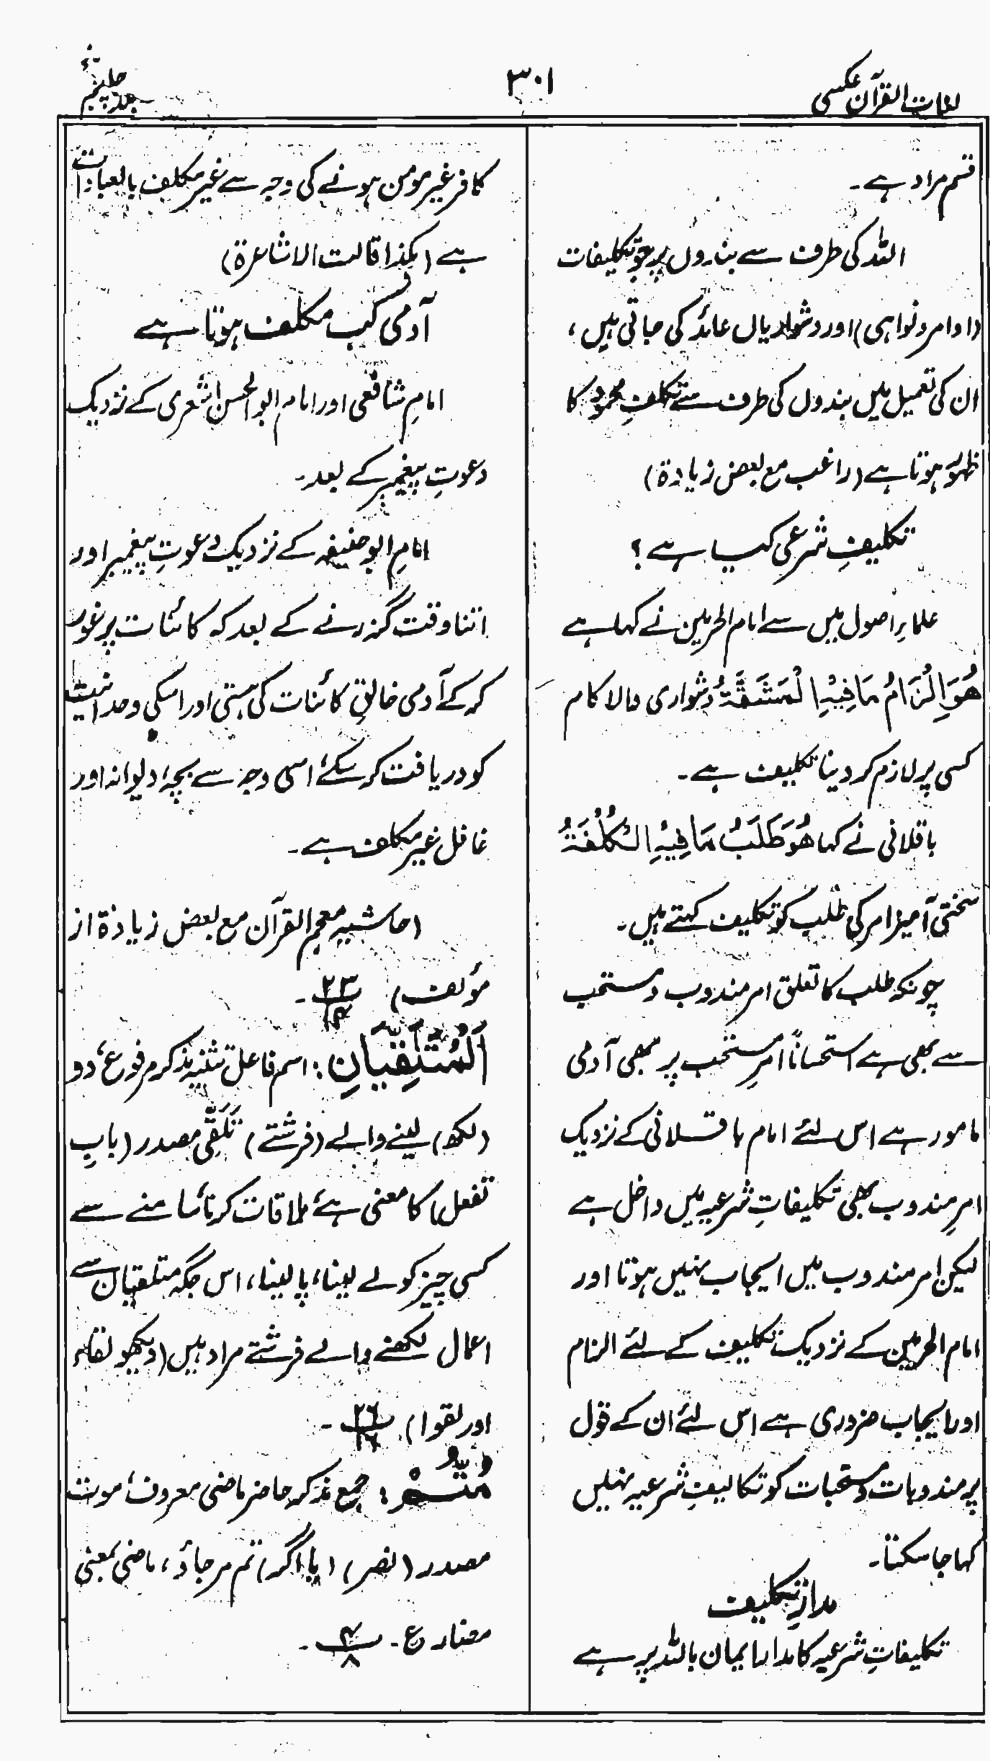 لغات القرآن عکسی
۳۰۱
جلد پنجم
قسم مراد ہے۔
اللہ کی طرف سے بندوں پر جو تکلیفات
(اوامر و نواہی) اور دشواریاں عائد کی جاتی ہیں،
ان کی تعمیل میں بندوں کی طرف سے تکلفِ محمود کا
ظہور ہوتا ہے (راغب مع بعض زیادۃ)
تکلیفِ شرعی کیا ہے؟
علماءِ اصول میں سے امام الحرمین نے کہا ہے
هُوَ اِلْزَامُ مَا فِيْهِ الْمَشَقَّةُ دشواری والا کام
کسی پر لازم کر دینا تکلیف ہے۔
باقلانی نے کہا هُوَ طَلَبُ مَا فِيْهِ الْكُلْفَةُ
سختی آمیز امر کی طلب کو تکلیف کہتے ہیں۔
چونکہ طلب کا تعلق امر مندوب و مستحب
سے بھی ہے استحساناً امرِ مستحب پر بھی آدمی
مامور ہے اس لئے امام باقلانی کے نزدیک
امرِ مندوب بھی تکلیفاتِ شرعیہ میں داخل ہے
لیکن امر مندوب میں ایجاب نہیں ہوتا اور
امام الحرمین کے نزدیک تکلیف کے لئے الزام
اور ایجاب ضروری ہے اس لئے ان کے قول
پر مندوبات و مستحبات کو تکالیفِ شرعیہ نہیں
کہا جا سکتا۔
مدارِ تکلیف
تکلیفاتِ شرعیہ کا مدار ایمان باللہ پر ہے
کافر غیر مومن ہونے کی وجہ سے غیر مکلف بالعبادات
ہے (ہکذا قالت الاشاعرۃ)
آدمی کب مکلف ہوتا ہے
امامِ شافعی اور امام ابو الحسن اشعری کے نزدیک
دعوتِ پیغمبر کے بعد۔
امامِ ابو حنیفہ کے نزدیک دعوتِ پیغمبر اور
اتنا وقت گذرنے کے بعد کہ کائنات پر غور
کر کے آدمی خالقِ کائنات کی ہستی اور اسکی وحدانیت
کو دریافت کر سکے، اسی وجہ سے بچہ، دیوانہ اور
غافل غیر مکلف ہے۔
(حاشیہ معجم القرآن مع بعض زیادۃ از
مؤلف) ۲۳/۴۔
اَلْمُتَلَقِّيَانِ: اسم فاعل تثنیہ مذکر مرفوع، دو
(لکھ) لینے والے (فرشتے) تَلَقِّی مصدر (بابِ
تفعل) کا معنی ہے، ملاقات کرنا، سامنے سے
کسی چیز کو لے لینا، پا لینا، اس جگہ متلقیان سے
اعمال لکھنے والے فرشتے مراد ہیں (دیکھو لقاء
اور لقوا) ۲۶/۱۶۔
مُتُّمْ: جمع مذکر حاضر ماضی معروف، موت
مصدر (نصر) (یا اگر) تم مر جاؤ، ماضی بمعنی
مضارع۔ ۴/۸۔